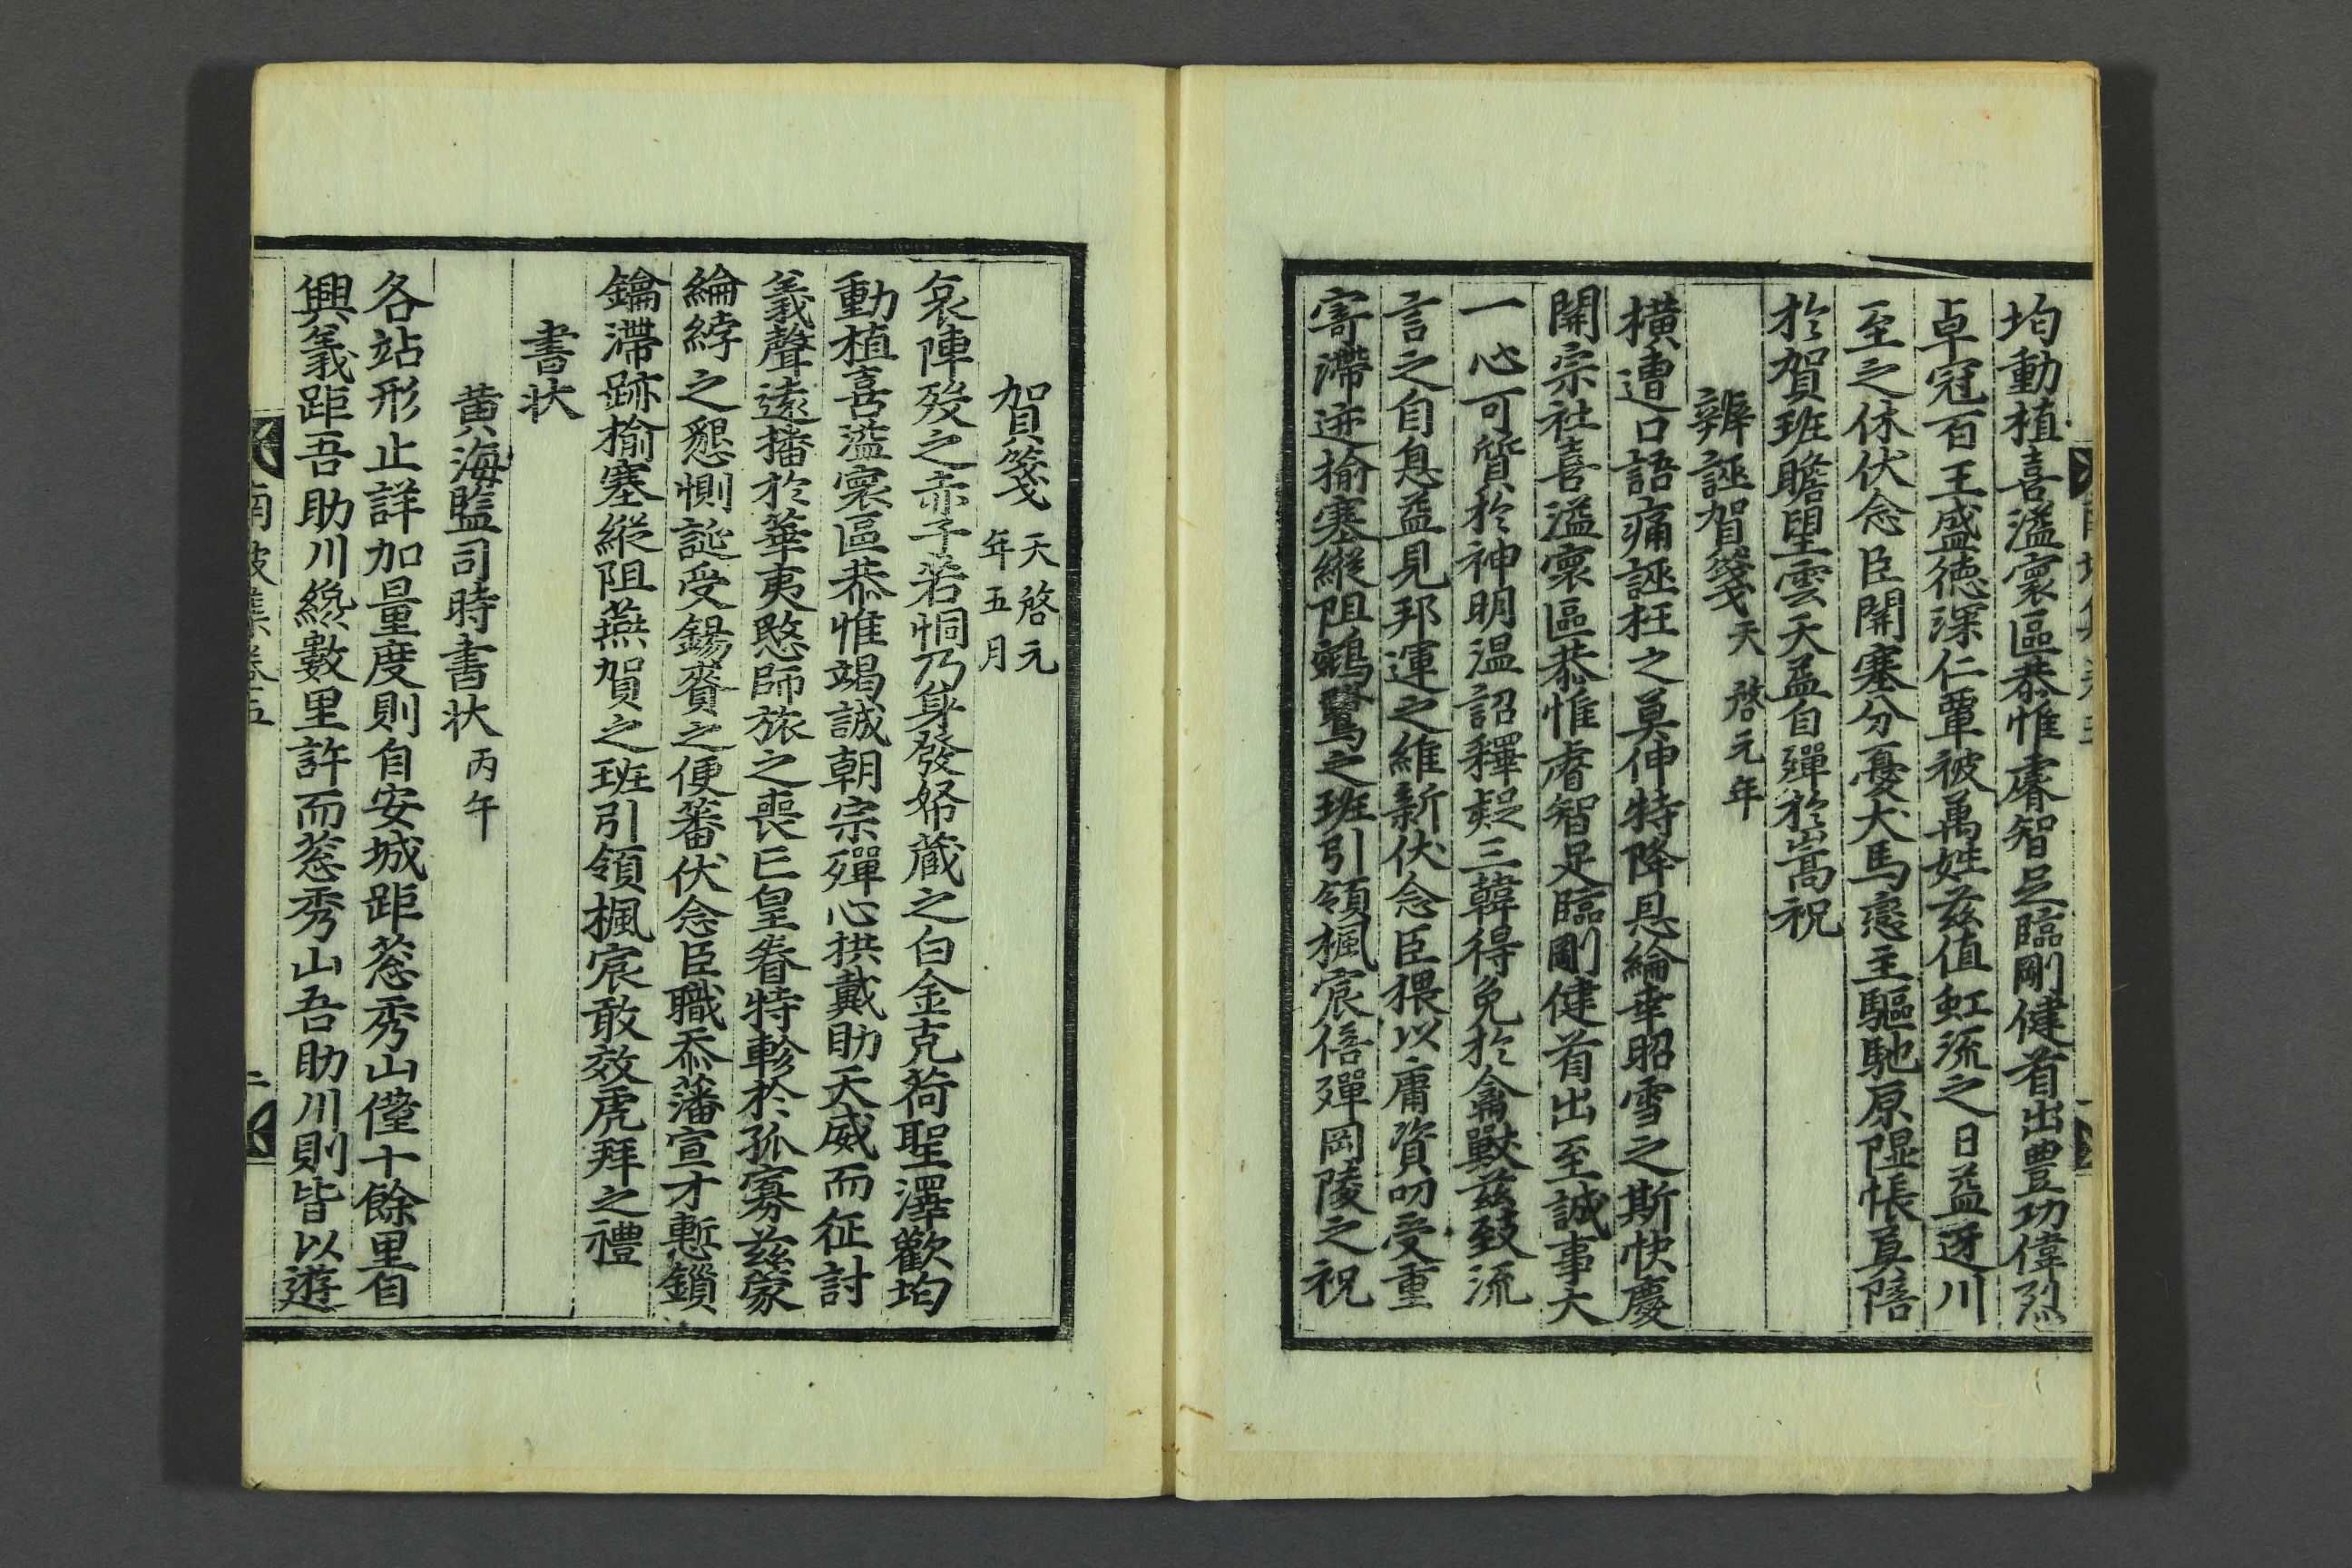 均動植喜溢寰區恭惟睿智足臨剛健首出豊功偉烈
卓冠百王盛徳深仁覃被萬姓玆值虹流之日益迓川
至之休伏念臣開塞分憂犬馬戀主驅馳原隰悵莫陪
於賀班瞻望雲天盍自殫於嵩祝
辨誣賀箋天啓元年
橫遭口語痛誣枉之莫伸特降恩綸幸昭雪之斯快慶
開宗社喜溢寰區恭惟睿智足臨剛健首出至誠事大
一心可質於神明温詔釋疑三韓得免於禽獸玆致流
言之自息益見邦運之維新伏念臣猥以庸資叨受重
寄滯迹揄塞縱阻鵷鷺之班引領楓宸倍殫岡陵之祝
賀箋天啓元年五月
哀陣歿之赤子若恫乃身發帑蔵之白金克荷聖澤歡均
動植喜溢寰區恭惟竭誠朝宗殫心拱戴助天威而征討
義聲遠播於華夷愍師旅之喪亡皇眷特軫於孤寡玆蒙
綸綍之懇惻誕受錫賚之便蕃伏念臣職忝藩宣才慙鎖
鑰滯跡揄塞縱阻燕賀之班引領楓宸敢效虎拜之禮
書状
黄海監司時書状丙午
各站形止詳加量度則自安城距葱秀山僅十餘里自
興義距吾助川纔數里許而葱秀山吾助川則皆以遊
南坡集卷五
二